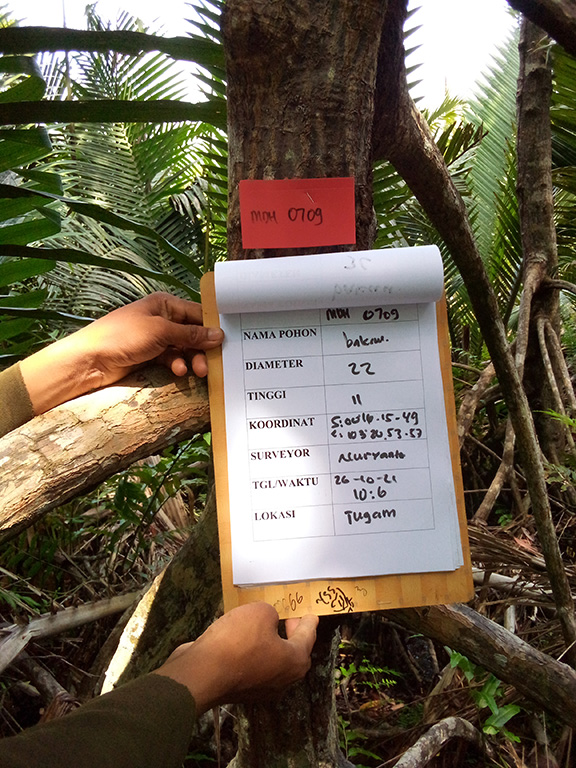 MDH 0709
35
MDH 0709
NAMA POHON bakau.
DIAMETER 22
TINGGI 11
KOORDINAT S.00.16-15-49
E.103.20.53-57
SURVEYOR Nuryanto
TGL/WAKTU 26-10-21
10:6
LOKASI Tugam
66